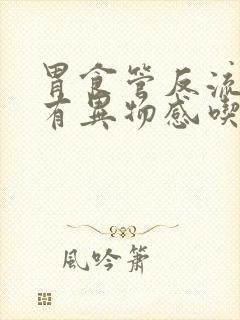 胃食管反流
有異物感喫
風吟簫